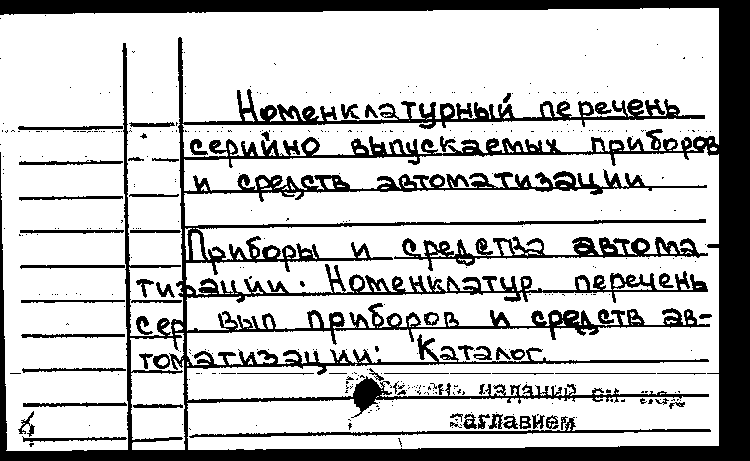 Номенклатурный перечень
серийно выпускаемых приборов
и средств автоматизации.
Приборы и средства автома-
тизации. Номенклатур. перечень
сер. вып приборов и средств ав-
томатизации: Каталог.
изданий см. под
заглавием